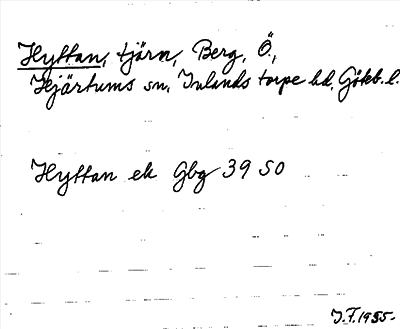 Hyttan, tjärn, Berg, Ö.,
Hjärtums sn, Inlands torpe hd, Göteb. l.
Hyttan ek Gbg 39 SO
J.F. 1955.